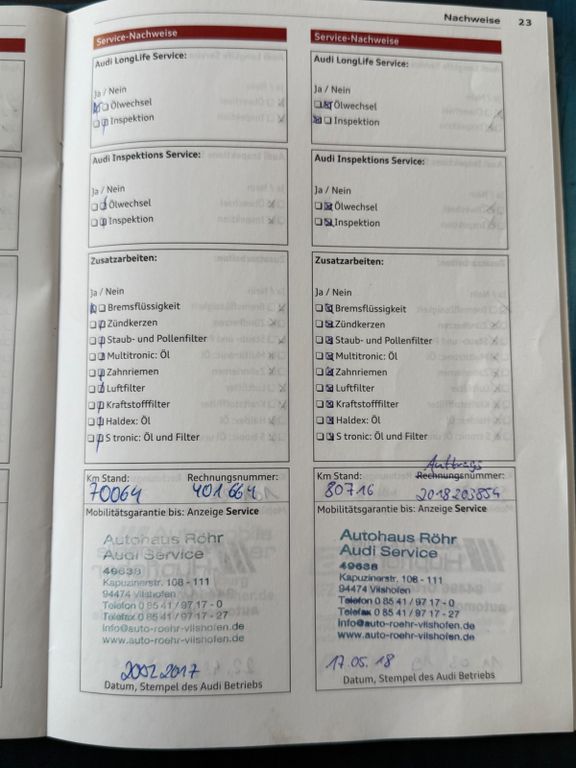 Nachweise 23
Service-Nachweise
Audi LongLife Service:
Ja / Nein
Ölwechsel
Inspektion
Audi Inspektions Service:
Ja / Nein
Ölwechsel
Inspektion
Zusatzarbeiten:
Ja / Nein
Bremsflüssigkeit
Zündkerzen
Staub- und Pollenfilter
Multitronic: Öl
Zahnriemen
Luftfilter
Kraftstofffilter
Haldex: Öl
S tronic: Öl und Filter
Km Stand: Rechnungsnummer:
70064 401664
Mobilitätsgarantie bis: Anzeige Service
Autohaus Röhr
Audi Service
49638
Kapuzinerstr. 108 - 111
94474 Vilshofen
Telefon 0 85 41 / 97 17 - 0
Telefax 0 85 41 / 97 17 - 27
info@auto-roehr-vilshofen.de
www.auto-roehr-vilshofen.de
Datum, Stempel des Audi Betriebs
Service-Nachweise
Audi LongLife Service:
Ja / Nein
Ölwechsel
Inspektion
Audi Inspektions Service:
Ja / Nein
Ölwechsel
Inspektion
Zusatzarbeiten:
Ja / Nein
Bremsflüssigkeit
Zündkerzen
Staub- und Pollenfilter
Multitronic: Öl
Zahnriemen
Luftfilter
Kraftstofffilter
Haldex: Öl
S tronic: Öl und Filter
Auftrags
Km Stand: Rechnungsnummer:
80716 2018203854
Mobilitätsgarantie bis: Anzeige Service
Autohaus Röhr
Audi Service
49638
Kapuzinerstr. 108 - 111
94474 Vilshofen
Telefon 0 85 41 / 97 17 - 0
Telefax 0 85 41 / 97 17 - 27
info@auto-roehr-vilshofen.de
www.auto-roehr-vilshofen.de
17.05.18
Datum, Stempel des Audi Betriebs